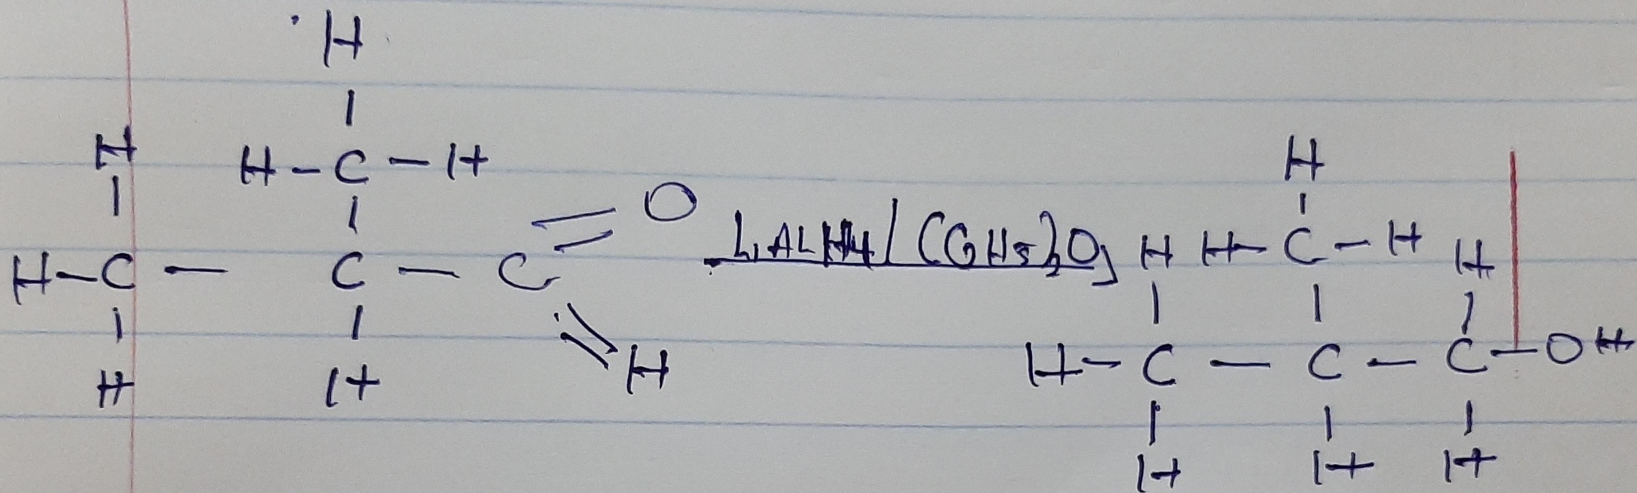 H
H H-C-H H
H-C-H O LiAlH4/(C2H5)2O H H-C-H H
H-C - C - C
H H H H-C - C - C-OH
H H H